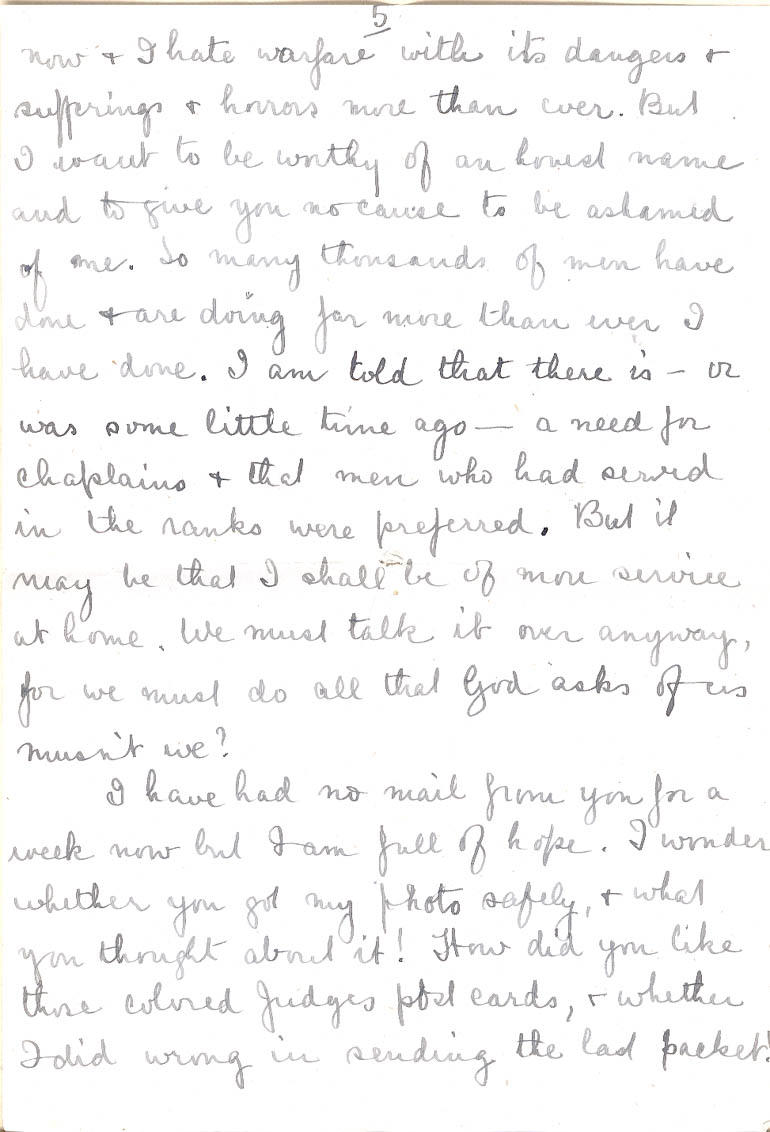 5
now + I hate warfare with its dangers +
sufferings + horrors more than ever. But
I want to be worthy of an honest name
and to give you no cause to be ashamed
of me. So many thousands of men have
done + are doing far more than ever I
have done. I am told that there is – or
was some little time ago — a need for
chaplains + that men who had served
in the ranks were preferred. But it
may be that I shall be of more service
at home. We must talk it over anyway,
for we must do all that God asks of us
musn't we?
I have had no mail from you for a
week now but I am full of hope. I wonder
whether you got my photo safely, + what
you thought about it! How did you like
those colored Judges post cards, + whether
I did wrong in sending the last packet!